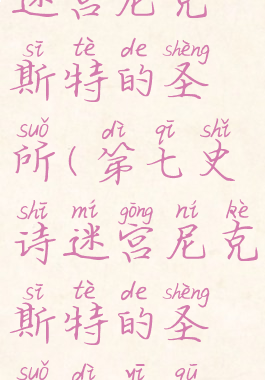 迷宫尼克
sī tè de shèng
斯特的圣
suǒ dì qī shǐ
所(第七史
shī mí gōng ní kè
诗迷宫尼克
sī tè de shèng
斯特的圣
suǒ dì yī gū